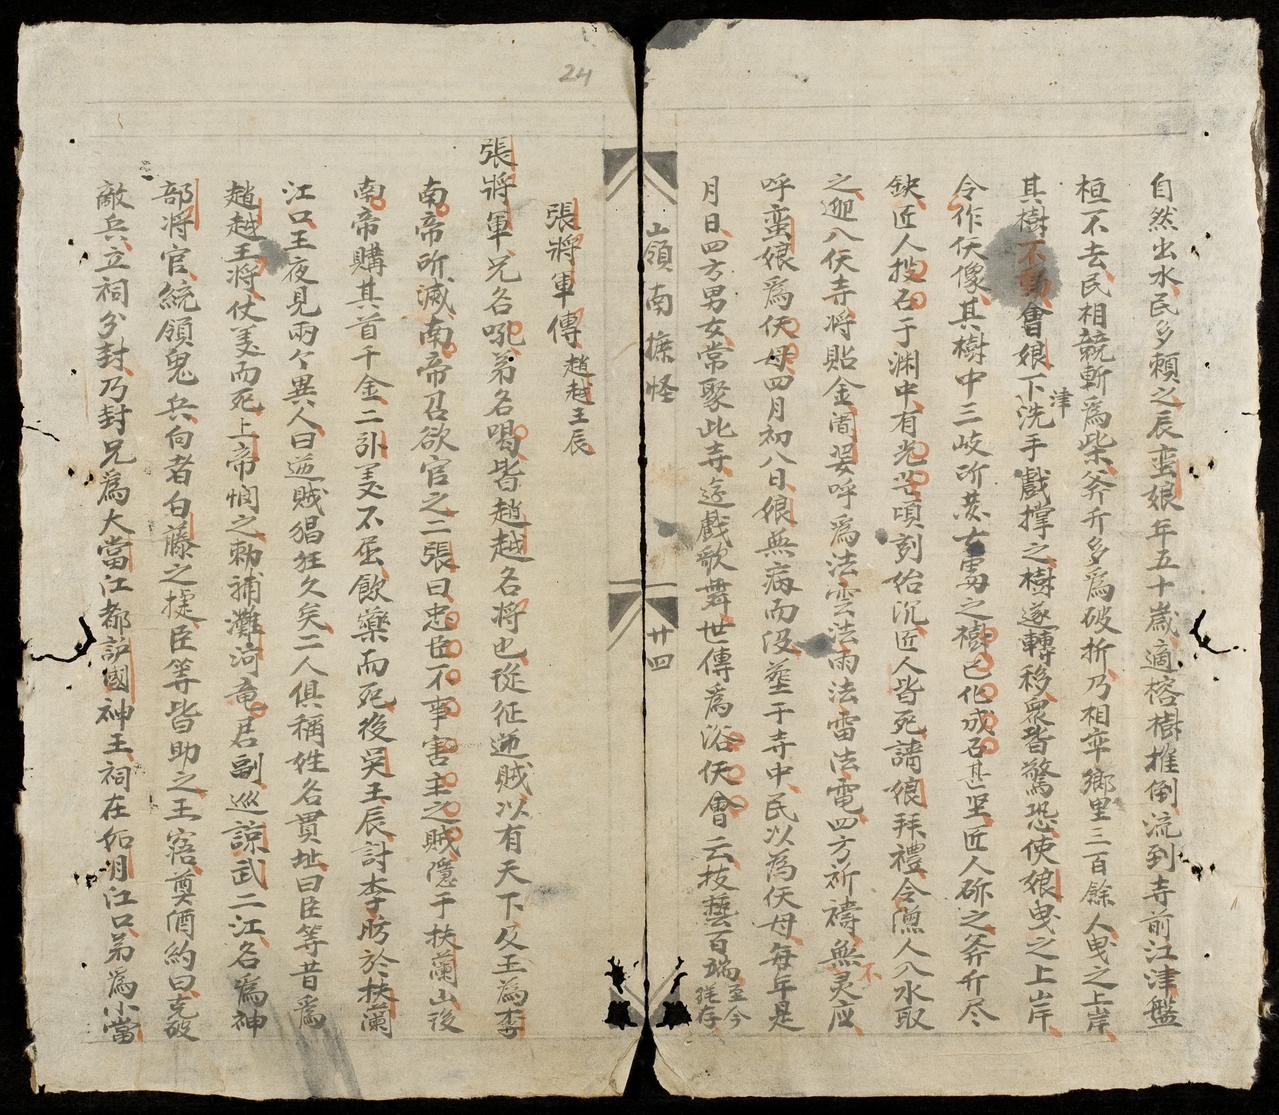 自然出水民多頼之辰蛮娘年五十歳適榕樹摧倒流到寺前江津盤
桓不去民相競斬為柴斧斤多為破折乃相率鄉里三百餘人曳之上岸
其樹不動會娘下津洗手戲撑之樹遂轉移眾皆驚恐使娘曳之上岸
令作仸像其樹中三岐所藏女男之樹已化成石甚坚匠人斫之斧斤尽
缺匠人投石于渊中有光芒頃刻始沉匠人皆死請娘拜禮令漁人入水取
之迎入仸寺将貼金闍梨呼為法雲法雨法雷法電四方祈禱無不灵应
呼蛮娘為仸母四月初八日娘無病而没塟于寺中民以為仸母每年是
月日四方男女常聚此寺遊戲歌舞世傳為浴仸會云技藝百端至今
猶存
山嶺南摭怪
廿四
24
張將軍傳趙越王辰
張將軍兄名吼弟名喝皆趙越名将也從征逆賊以有天下及王為李
南帝所滅南帝召欲官之二張曰忠臣不事害主之賊隱于扶蘭山後
南帝購其首千金二引美不屈飲藥而死後吴王辰討李昉於扶蘭
江口王夜見兩々異人曰逆賊猖狂久矣二人俱稱姓名貫址曰臣等昔為
趙越王将仗義而死上帝憫之勅補灘河竜君副巡諒武二江名為神
部将官統領鬼兵向者白藤之捷臣等皆助之王寤奠酒約曰克破
敵兵立祠分封乃封兄為大當江都護國神王祠在如月江口弟為小當